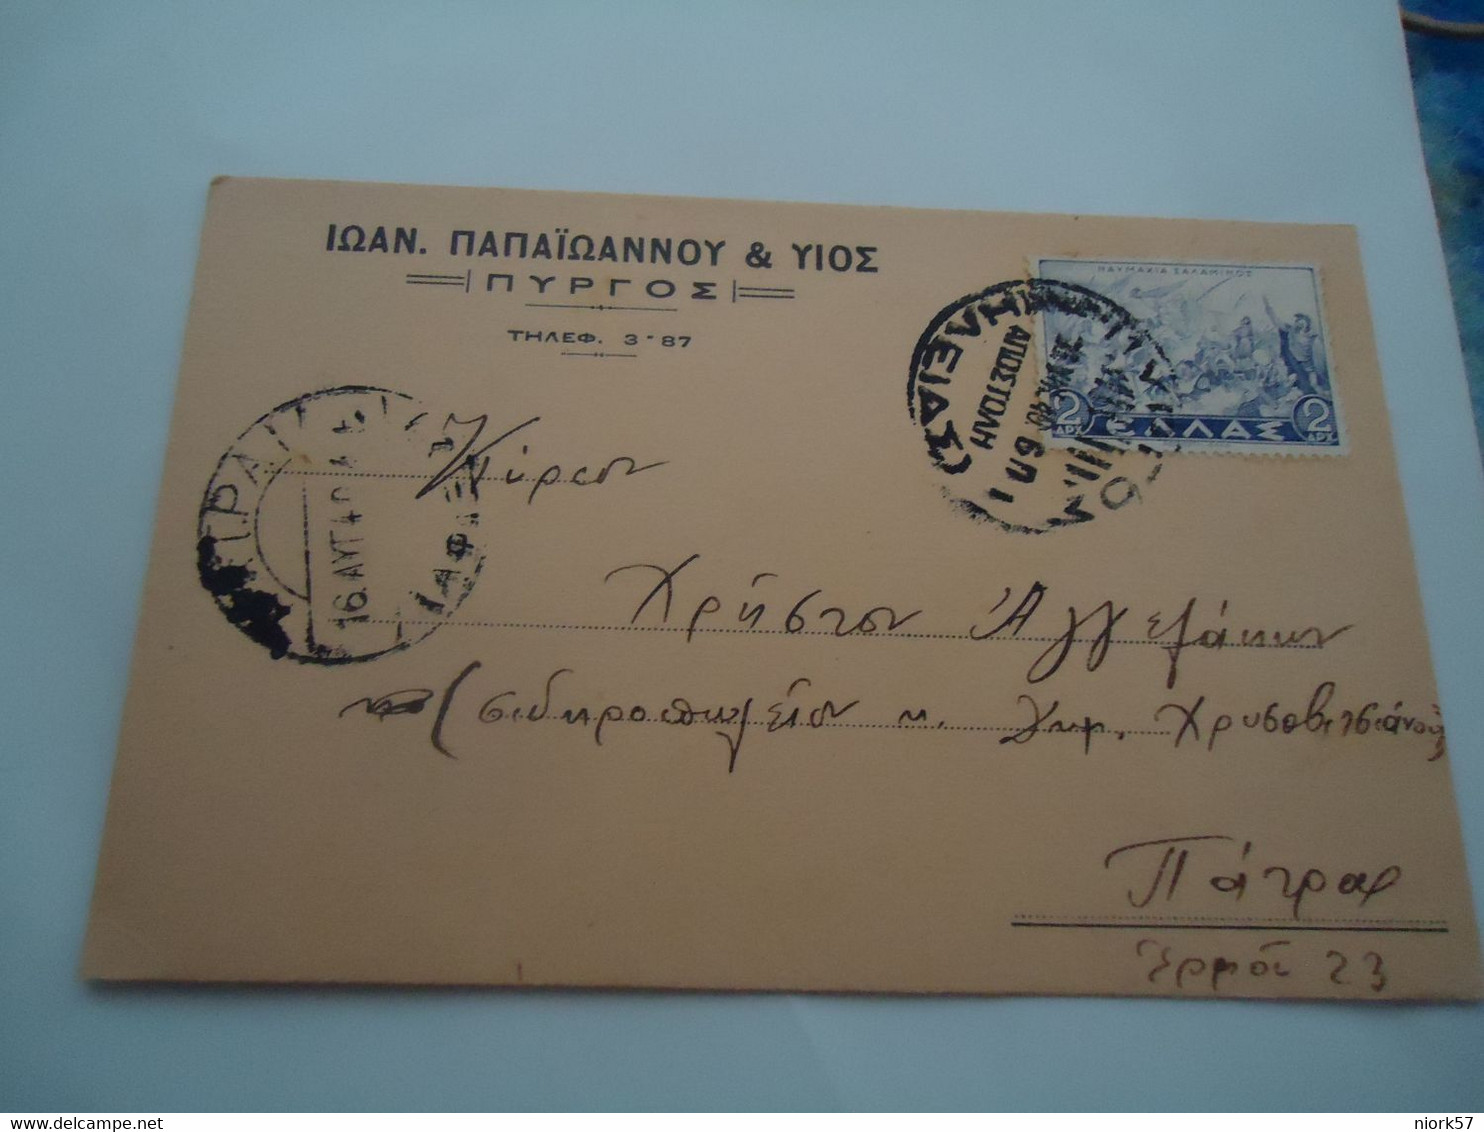 ΙΩΑΝ. ΠΑΠΑΪΩΑΝΝΟΥ & ΥΙΟΣ
ΠΥΡΓΟΣ
ΤΗΛΕΦ. 3-87
ΝΑΥΜΑΧΙΑ ΣΑΛΑΜΙΝΟΣ
2 ΔΡΧ ΕΛΛΑΣ 2 ΔΡΧ
ΗΛΕΙΑΣ)
ΑΠΟΣΤΟΛΗ
6Π
ΠΑΤΡΑΙ
16.ΑΥΓ.40
Κύριον
Χρῆστον Ἀγγελάκην
(σιδηροπωλεῖον κ. Δημ. Χρυσοβιτσιάνου)
Πάτρας
Ἑρμοῦ 23
delcampe.net
niork57